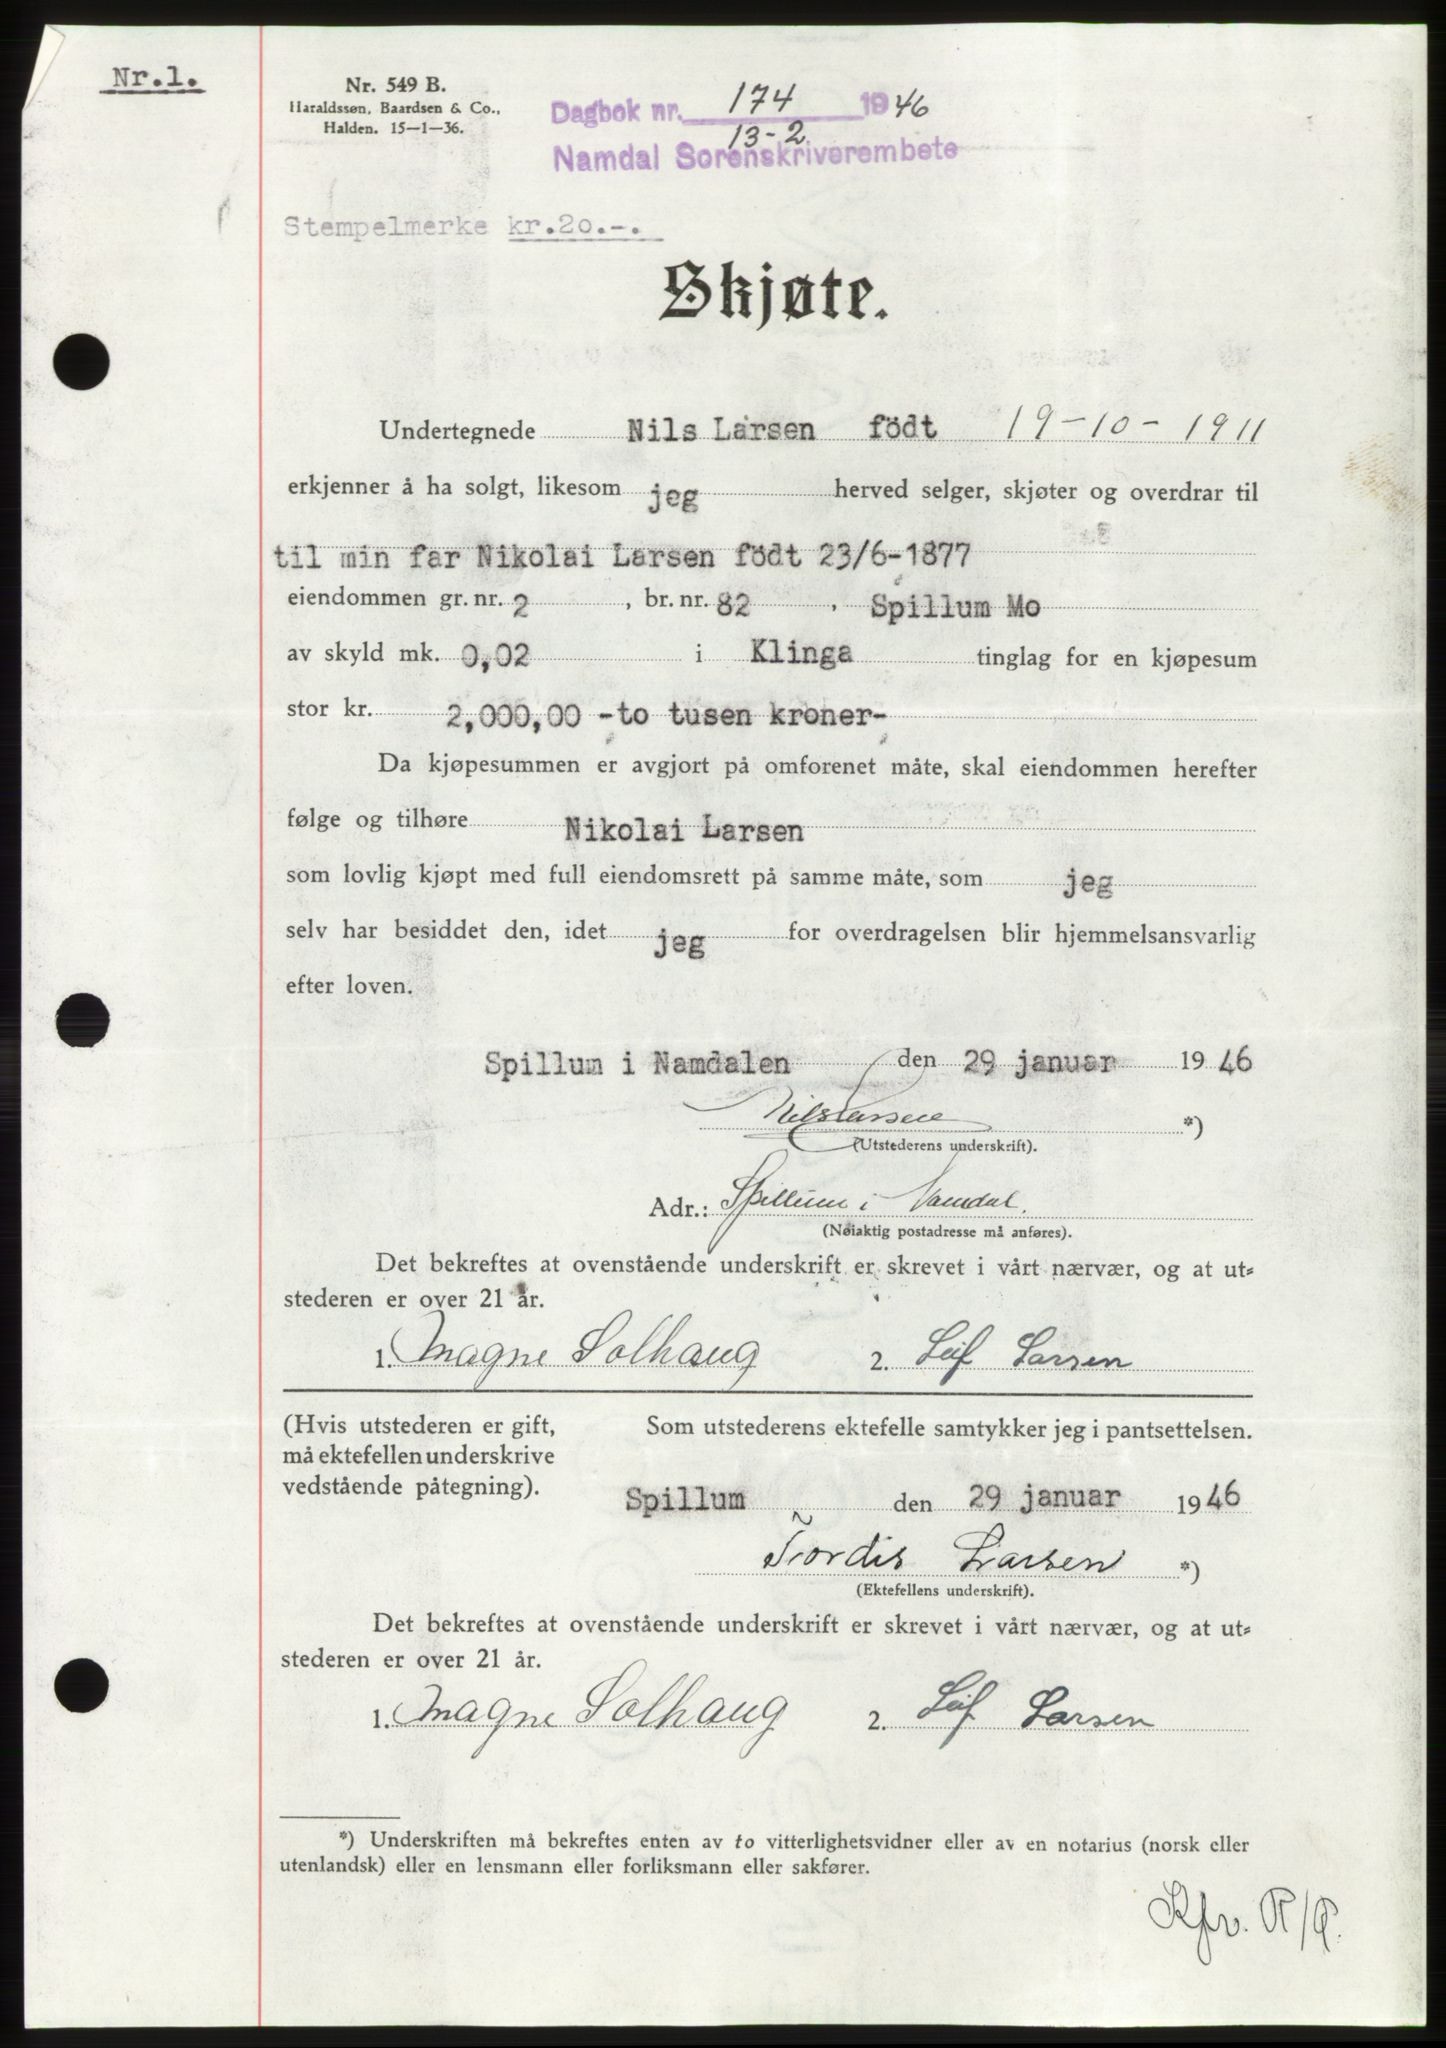 Nr.1.
Nr. 549 B.
Haraldssøn, Baardsen & Co.,
Halden. 15-1-36.
Dagbok nr. 174 1946
13-2
Namdal Sorenskriverembete
Stempelmerke kr.20.-.
Skjøte.
Undertegnede Nils Larsen födt 19-10-1911
erkjenner å ha solgt, likesom jeg herved selger, skjøter og overdrar til
til min far Nikolai Larsen födt 23/6-1877
eiendommen gr. nr. 2, br. nr. 82, Spillum Mo
av skyld mk. 0,02 i Klinga tinglag for en kjøpesum
stor kr. 2,000,00 -to tusen kroner-
Da kjøpesummen er avgjort på omforenet måte, skal eiendommen herefter
følge og tilhøre Nikolai Larsen
som lovlig kjøpt med full eiendomsrett på samme måte, som jeg
selv har besiddet den, idet jeg for overdragelsen blir hjemmelsansvarlig
efter loven.
Spillum i Namdalen den 29 januar 1946
Nils Larsen *)
(Utstederens underskrift).
Adr.: Spillum i Namdal.
(Nøiaktig postadresse må anføres).
Det bekreftes at ovenstående underskrift er skrevet i vårt nærvær, og at ut=
stederen er over 21 år.
1. Magne Solhaug 2. Leif Larsen
(Hvis utstederen er gift, Som utstederens ektefelle samtykker jeg i pantsettelsen.
må ektefellen underskrive
vedstående påtegning).
Spillum den 29 januar 1946
Tordis Larsen *)
(Ektefellens underskrift).
Det bekreftes at ovenstående underskrift er skrevet i vårt nærvær, og at ut=
stederen er over 21 år.
1. Magne Solhaug 2. Leif Larsen
*) Underskriften må bekreftes enten av to vitterlighetsvidner eller av en notarius (norsk eller
utenlandsk) eller en lensmann eller forliksmann eller sakfører.
Kfr.